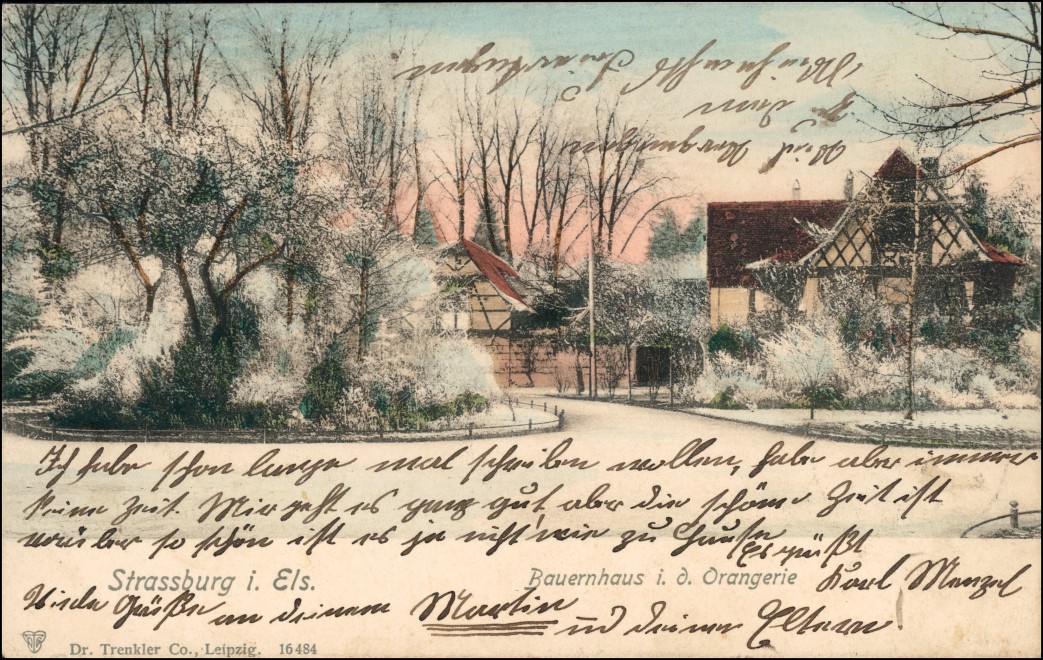 Ich habe schon lange mal schreiben wollen, habe aber immer
keine Zeit. Mir geht es ganz gut, aber die schöne Zeit ist
vorüber so schön ist es ja nicht wie zu Hause
Es grüßt
Karl Menzel
Strassburg i. Els.
Bauernhaus i. d. Orangerie
Viele Grüße an deinem Martin und deinen Eltern
Dr. Trenkler Co., Leipzig. 16484
Viel Vergnügen
z. den
Weihnachts Feiertagen